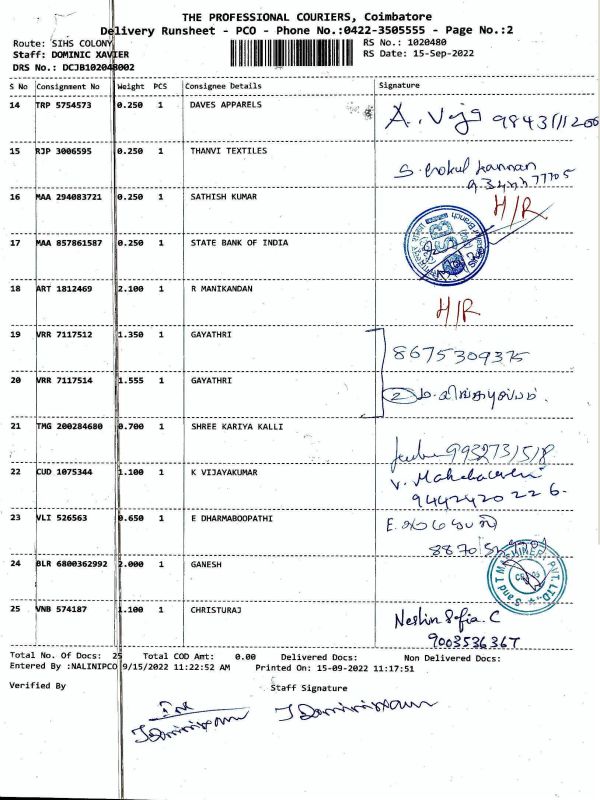 THE PROFESSIONAL COURIERS, Coimbatore
Delivery Runsheet - PCO - Phone No.:0422-3505555 - Page No.:2
Route: SIHS COLONY RS No.: 1020480
Staff: DOMINIC XAVIER RS Date: 15-Sep-2022
DRS No.: DCJB102048002
S No Consignment No Weight PCS Consignee Details Signature
14 TRP 5754573 0.250 1 DAVES APPARELS
15 RJP 3006595 0.250 1 THANVI TEXTILES
16 MAA 294083721 0.250 1 SATHISH KUMAR H/R
17 MAA 857861587 0.250 1 STATE BANK OF INDIA
18 ART 1812469 2.100 1 R MANIKANDAN H/R
19 VRR 7117512 1.350 1 GAYATHRI 8675309375
20 VRR 7117514 1.555 1 GAYATHRI 2
21 TMG 200284680 0.700 1 SHREE KARIYA KALLI
22 CUD 1075344 1.100 1 K VIJAYAKUMAR
9442420226.
23 VLI 526563 0.650 1 E DHARMABOOPATHI
24 BLR 6800362992 2.000 1 GANESH
25 VNB 574187 1.100 1 CHRISTURAJ Neshin Sofia. C
9003536367
Total No. Of Docs: 25 Total COD Amt: 0.00 Delivered Docs: Non Delivered Docs:
Entered By :NALINIPCO 9/15/2022 11:22:52 AM Printed On: 15-09-2022 11:17:51
Verified By Staff Signature